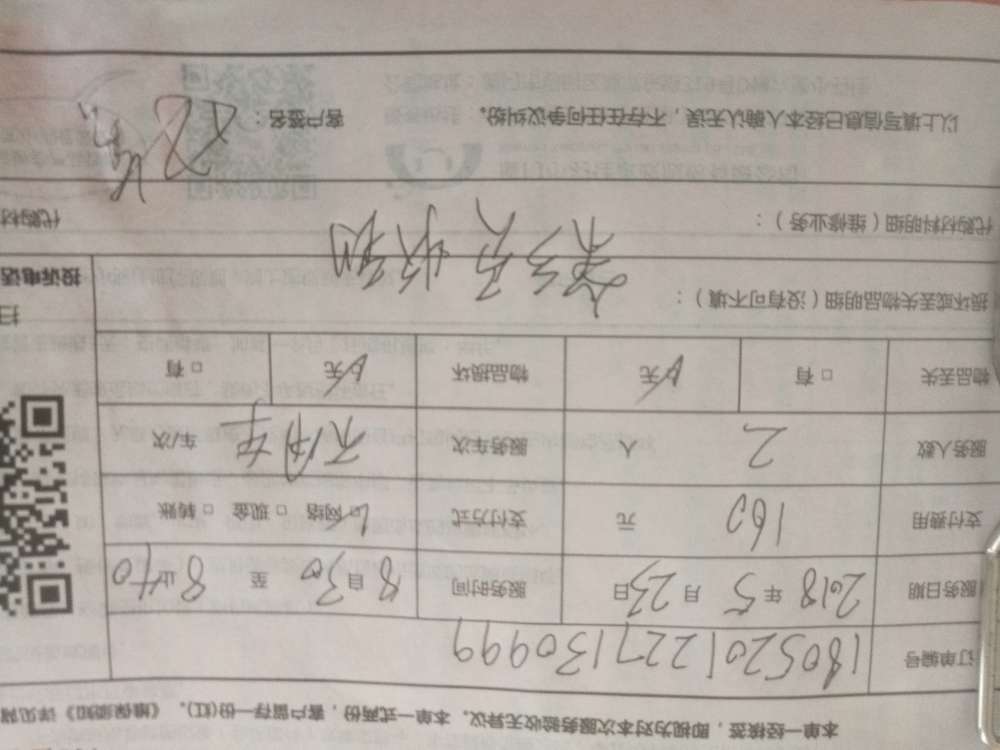 本单一经核签，即视为对本次服务验收无异议。本单一式两份，客户留存一份(红)。《维保须知》详见
订单编号 1805201227130999
服务日期 2018 年 5 月 23 日 服务时间 8 自 30 至 8 止 40
支付费用 160 元 支付方式 ☑ 网络 □ 现金 □ 转账
服务人数 2 人 服务车次 不用车 车/次
物品丢失 □ 有 ☑ 无 物品损坏 ☑ 无 □ 有
损坏或丢失物品明细（没有可不填）：
代购材料明细（维修业务）： 代购材
投诉电话
扫
以上填写信息已经本人确认无误，不存在任何争议纠纷。 客户签名：